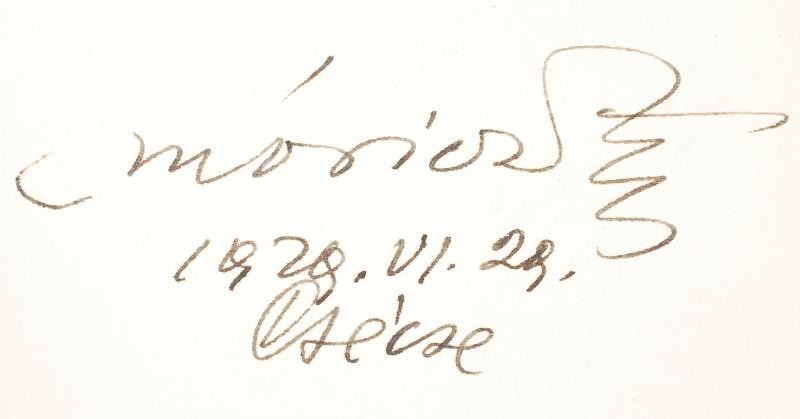 Móricz Zs
1929. VI. 29.
Csécse